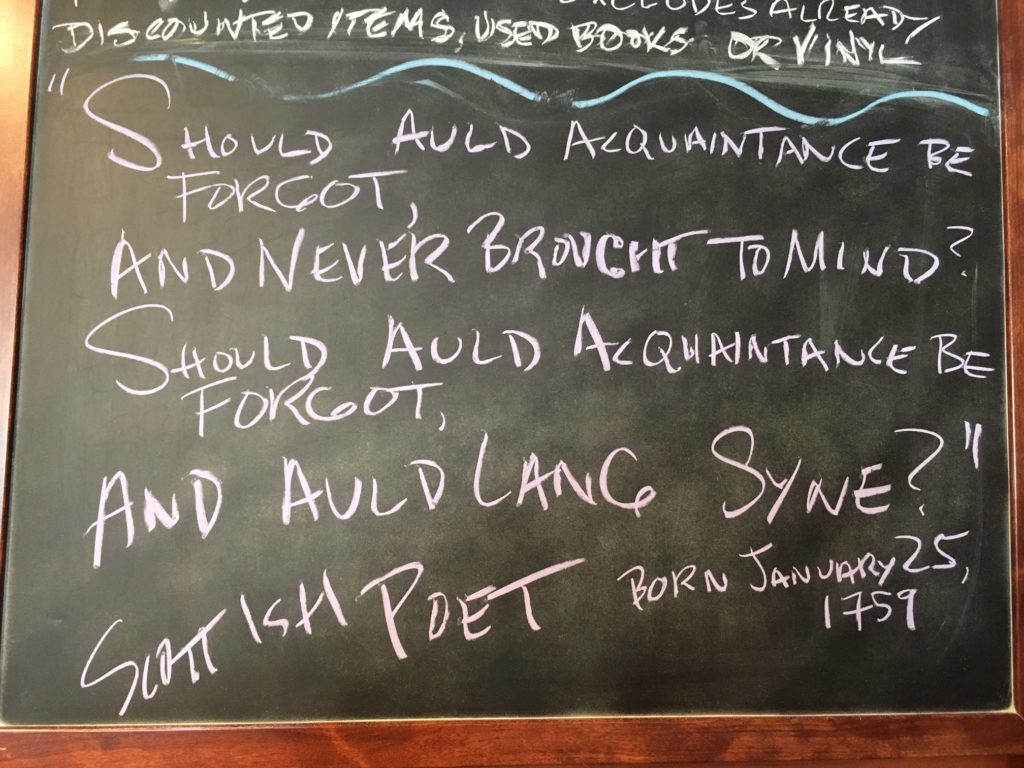 EXCLUDES ALREADY
DISCOUNTED ITEMS, USED BOOKS OR VINYL
"SHOULD AULD ACQUAINTANCE BE
FORGOT,
AND NEVER BROUGHT TO MIND?
SHOULD AULD ACQUAINTANCE BE
FORGOT,
AND AULD LANG SYNE?"
SCOTTISH POET BORN JANUARY 25,
1759